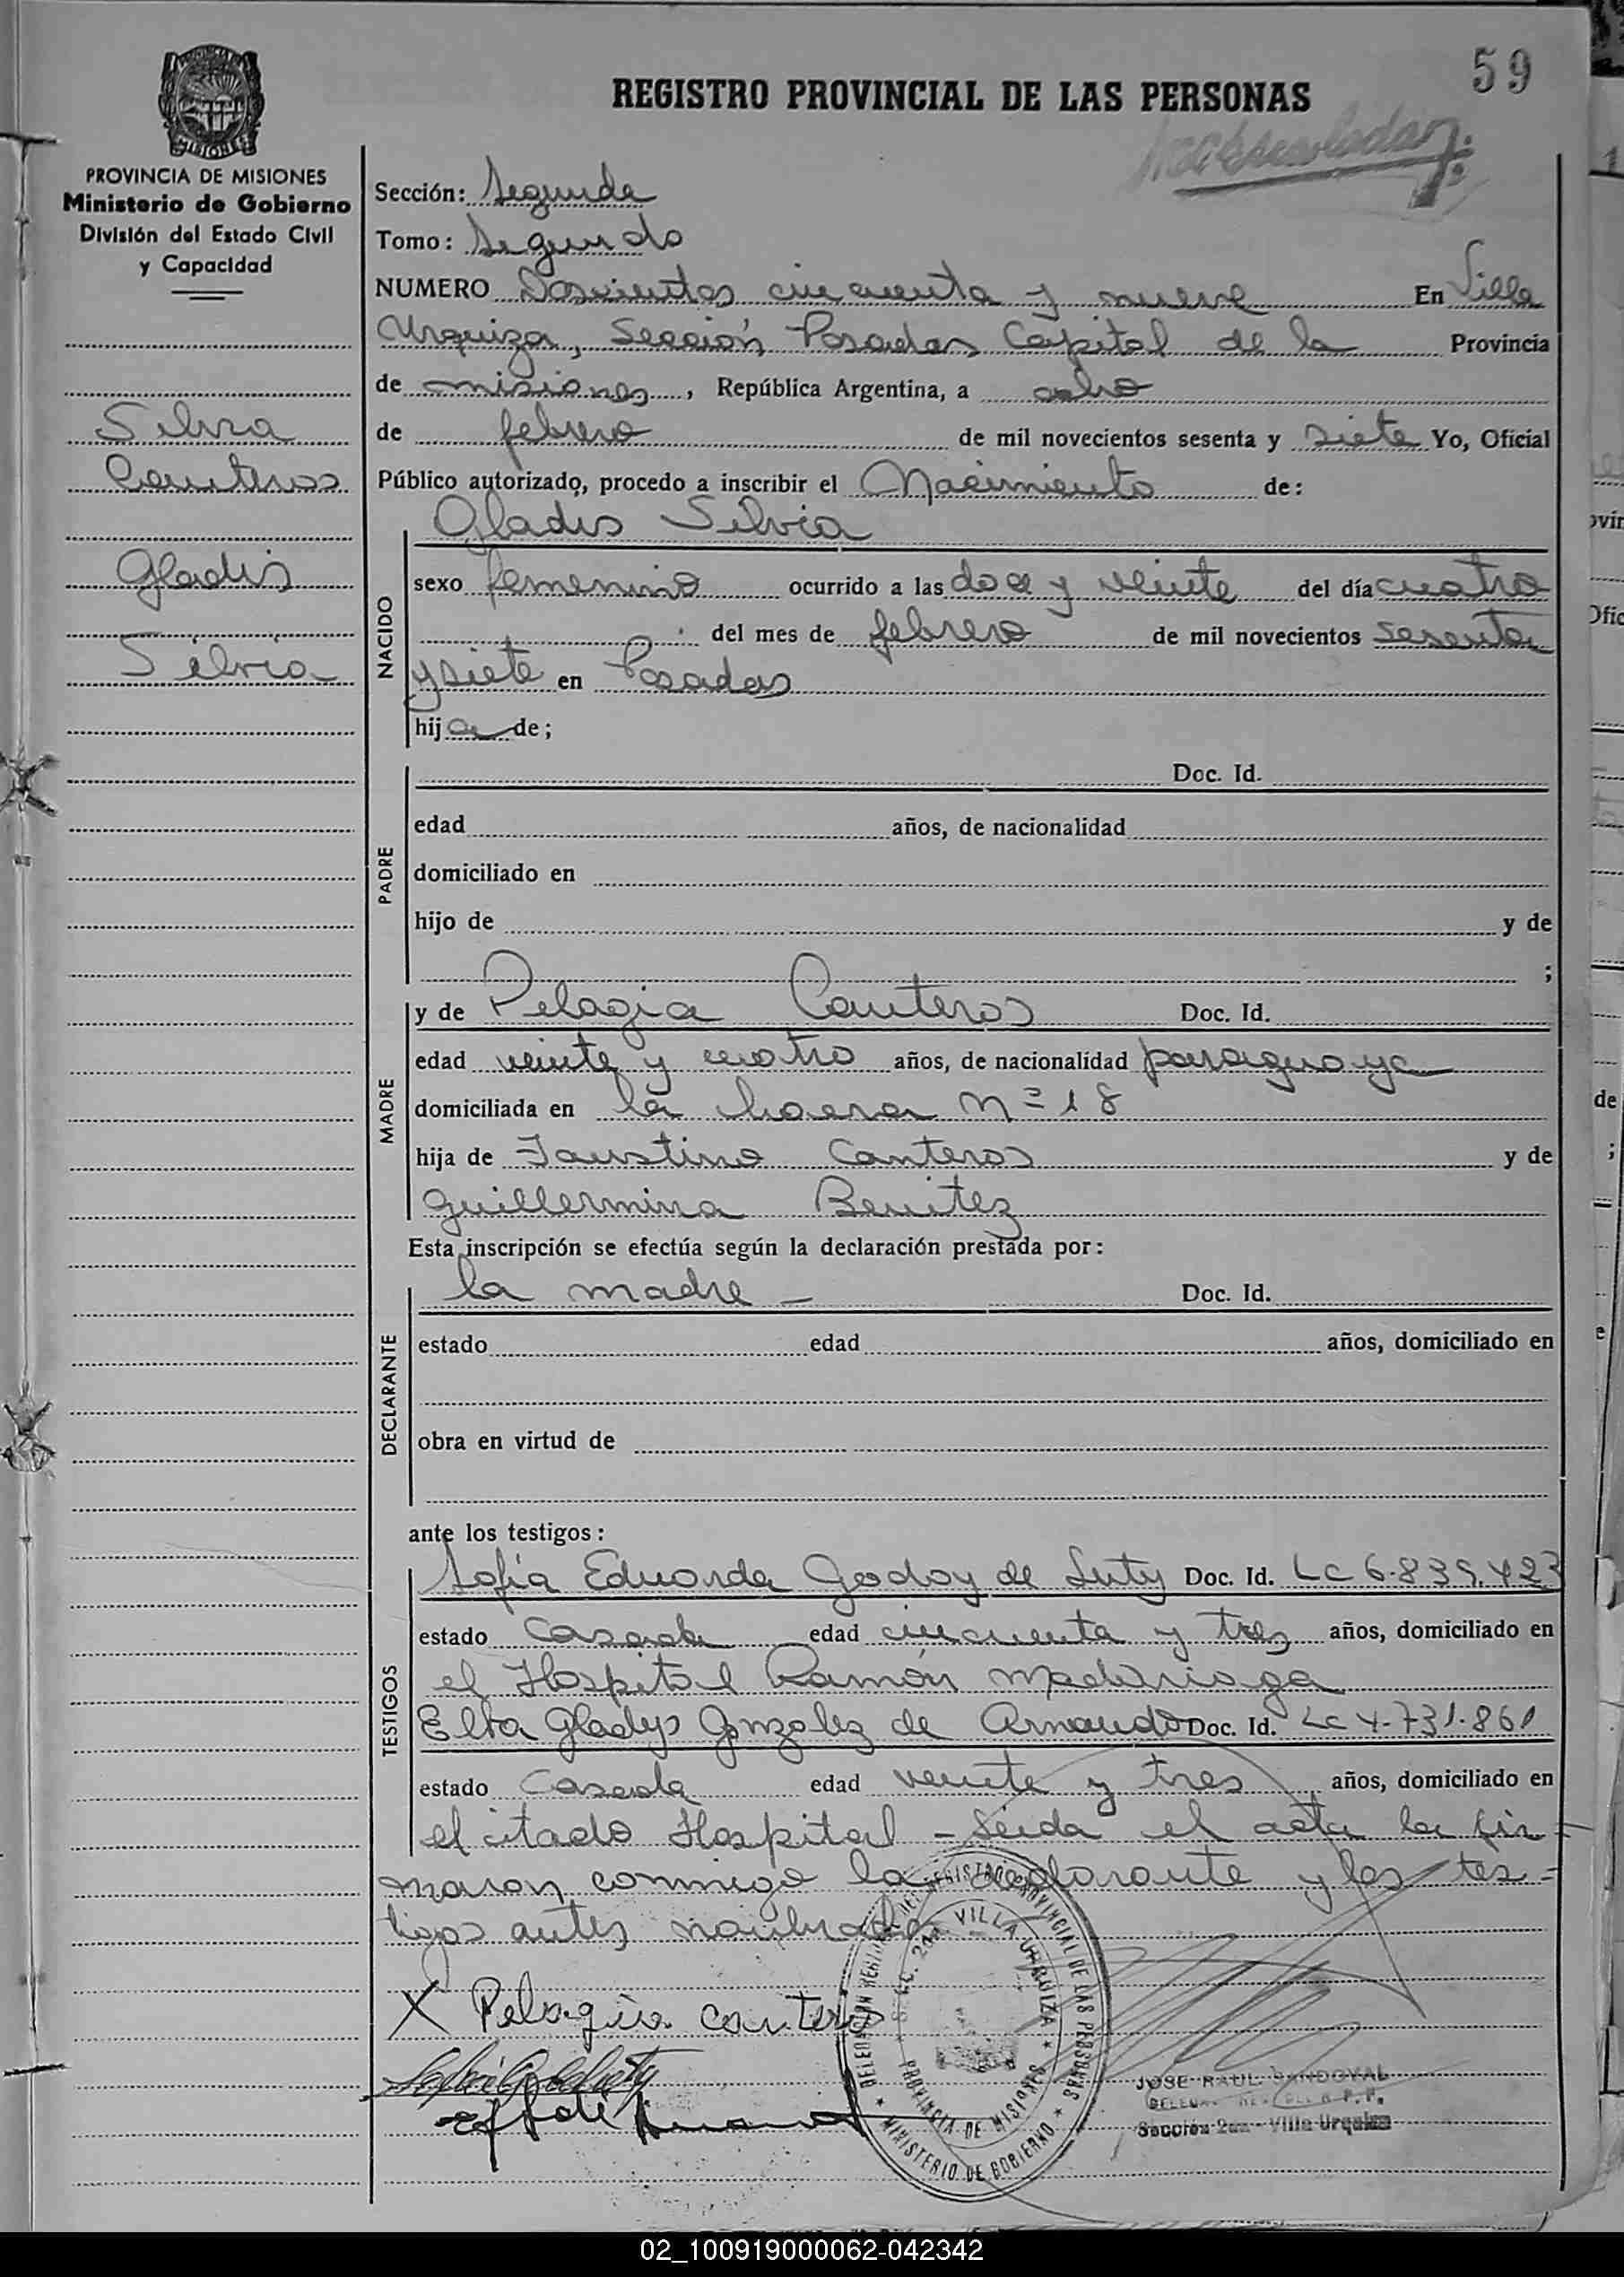 59
REGISTRO PROVINCIAL DE LAS PERSONAS
MISIONES
PROVINCIA DE MISIONES
Ministerio de Gobierno
División del Estado Civil
y Capacidad
Sección: Segunda
Tomo: Segundo
NUMERO Doscientos cincuenta y nueve En Villa
Urquiza, Sección Posadas Capital de la Provincia
de misiones, República Argentina, a ocho
de febrero de mil novecientos sesenta y siete Yo, Oficial
Público autorizado, procedo a inscribir el Nacimiento de:
Silvia
Canteros
Gladis
Silvia
NACIDO
Gladis Silvia
sexo femenino ocurrido a las doce y veinte del día cuatro
del mes de febrero de mil novecientos sesenta
y siete en Posadas
hija de;
PADRE
Doc. Id.
edad años, de nacionalidad
domiciliado en
hijo de y de
;
MADRE
y de Pelagia Canteros Doc. Id.
edad veinte y cuatro años, de nacionalidad paraguaya
domiciliada en la chacra Nº 18
hija de Faustino Canteros y de
Guillermina Benitez
Esta inscripción se efectúa según la declaración prestada por:
DECLARANTE
la madre - Doc. Id.
estado edad años, domiciliado en
obra en virtud de
ante los testigos:
TESTIGOS
Sofía Eduarda Godoy de Luty Doc. Id. LC 6.839.423
estado Casada edad cincuenta y tres años, domiciliado en
el Hospital Ramón Madariaga
Elba Gladys Gonzalez de Arnaudo Doc. Id. LC 4.731.861
estado Casada edad veinte y tres años, domiciliado en
el citado Hospital - Leida el acta la fir-
maron conmigo la declarante y los tes-
tigos antes nombrados
X Pelagia canteros
REGISTRO PROVINCIAL DE LAS PERSONAS
MINISTERIO DE GOBIERNO
SECC. 2da VILLA URQUIZA
PROVINCIA DE MISIONES
JOSE RAUL SANDOVAL
Sección 2da - Villa Urquiza
02_100919000062-042342